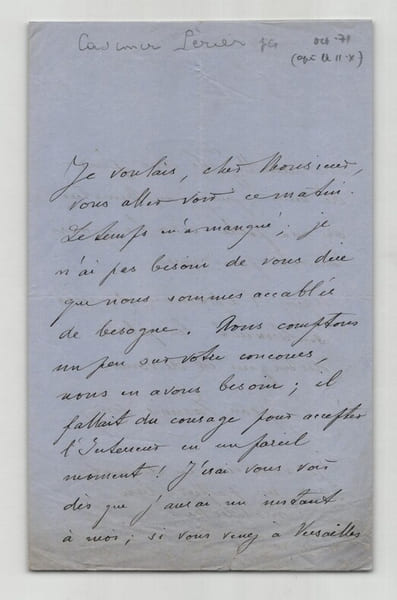 Casimir Périer fils oct. 71
(après le 11-X)
Je voulais, cher Monsieur,
vous aller voir ce matin.
Le temps m'a manqué ; je
n'ai pas besoin de vous dire
que nous sommes accablés
de besogne. Nous comptons
un peu sur votre concours,
nous en avons besoin ; il
fallait du courage pour accepter
l'Intérieur en un pareil
moment ! J'irai vous voir
dès que j'aurai un instant
à moi ; si vous venez à Versailles